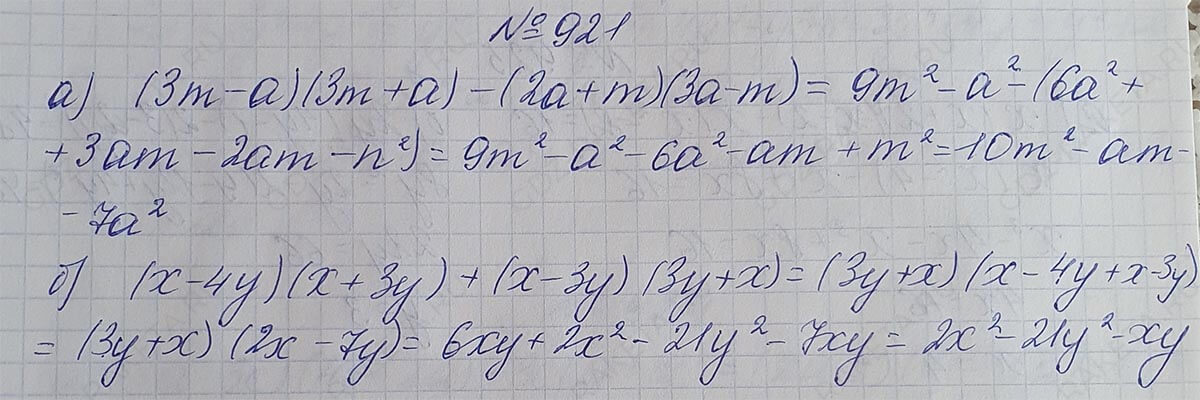 № 921
а) (3m-a)(3m+a)-(2a+m)(3a-m)= 9m²-a²-(6a²+
+3am-2am-n²)= 9m²-a²-6a²-am+m²=10m²-am-
-7a²
б) (x-4y)(x+3y)+(x-3y)(3y+x)=(3y+x)(x-4y+x-3y)
=(3y+x)(2x-7y)= 6xy+2x²-21y²-7xy= 2x²-21y²-xy